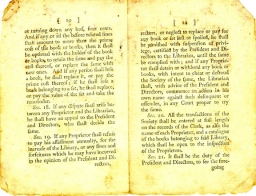 [ 20 ]
or turning down any leaf, four cents.
And if any or all the before related fines
shall amount to more than the prime
cost of the book or books, then it shall
be optional with the holder of the book
or books, to retain the same and pay the
cost thereof, or replace the same with
new ones. And if any person shall lose
a book, he shall replace it, or pay the
prime cost thereof; if he shall lose a
book belonging to a set, he shall replace,
or pay the value of the set and take the
remainder.
Sec. 18. If any dispute shall arise between
any Proprietor and the Librarian,
he shall have an appeal to the President
and Directors, who shall decide the
same.
Sec. 19. If any Proprietor shall refuse
to pay his assessment annually, for the
increase of the Library, or any fines and
forfeitures which he may have incurred
in the opinion of the President and Di-
rectors,
[ 21 ]
rectors, or neglect to replace or pay for
any book or set lost or spoiled, he shall
be punished with suspension of privilege,
certified by the President and Directors
to the Librarian, until the same
be complied with; and if any Proprietor
shall detain or withhold any book or
books, with intent to clear or defraud
the Society of the same, the Librarian
shall, with advice of the President and
Directors, commence an action in his
own name against such delinquent or
offender, in any Court proper to try
the same.
Sec. 20. All the transactions of the
Society shall be entered at full length
on the records of the Clerk, and the
name of each Proprietor, and a catalogue
of the books belonging to said Library,
which shall be open to the inspection
of the Proprietors.
Sec. 21. It shall be the duty of the
President and Directors, to see the fore-
going